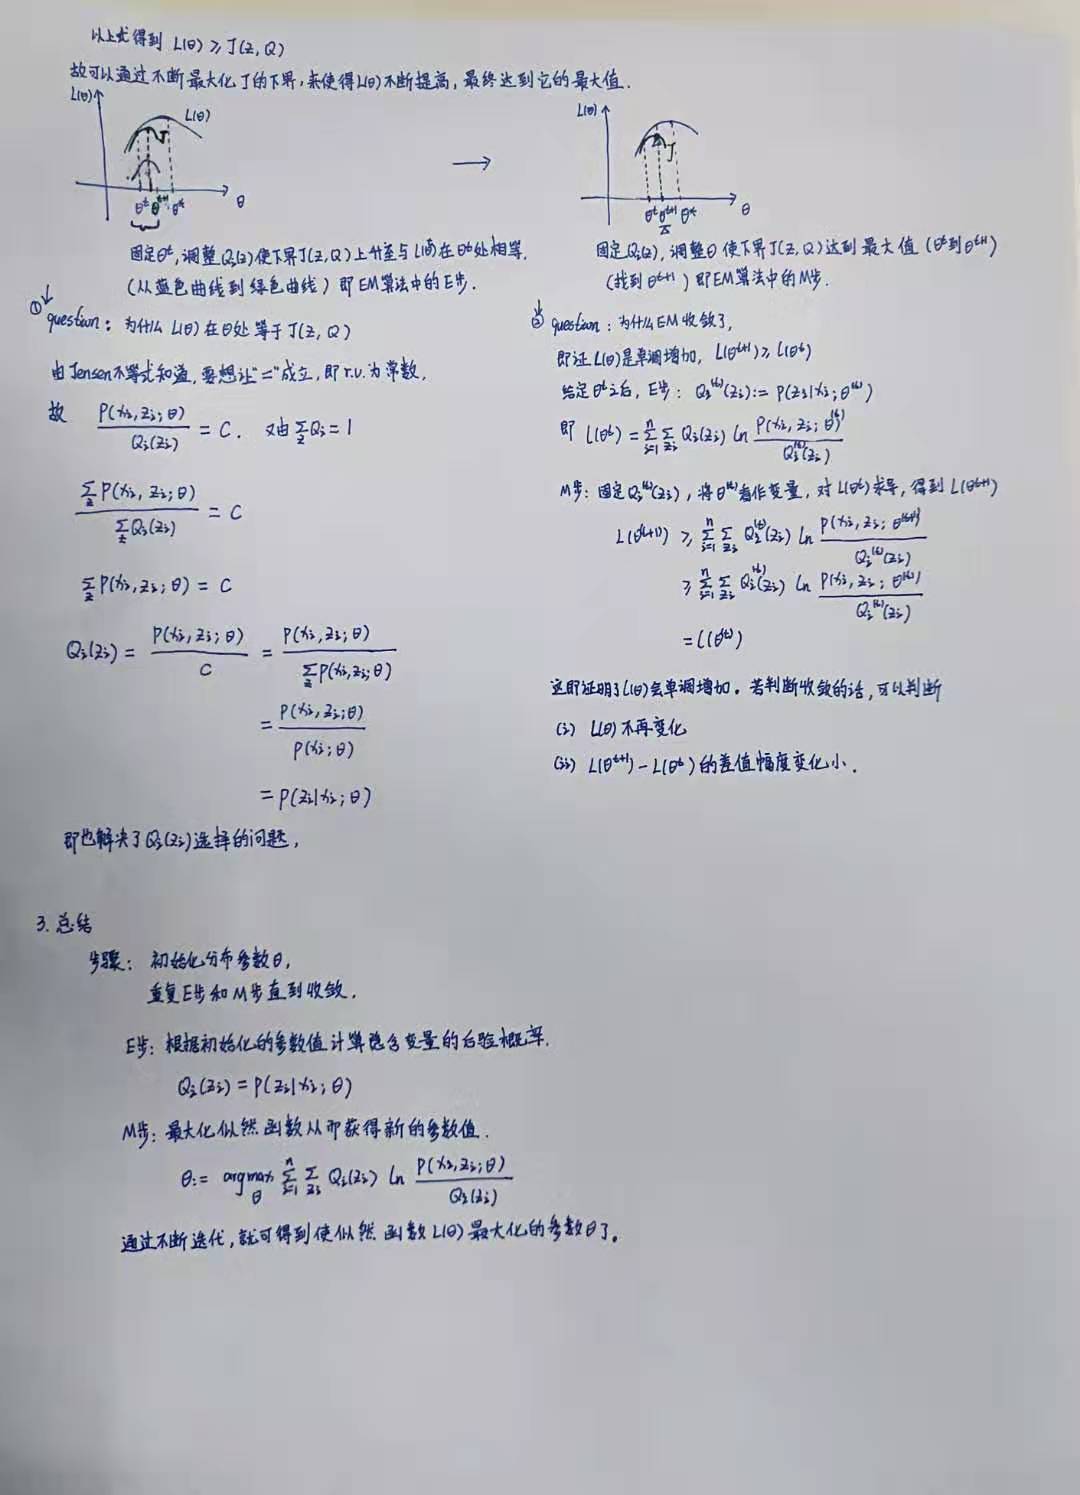 以上式得到 L(θ) ≥ J(Z, Q)
故可以通过不断最大化J的下界,来使得L(θ)不断提高,最终达到它的最大值.
L(θ)
L(θ)
J
θ^t θ^{t+1} θ*
θ
固定θ^t,调整Q_i(z)使下界J(Z,Q)上升至与L(θ)在θ^t处相等.
(从蓝色曲线到绿色曲线)即EM算法中的E步.
① question: 为什么 L(θ)在θ处等于J(Z,Q)
由Jensen不等式知道,要想让"="成立,即r.v.为常数.
故 P(x_i,z_i;θ) / Q_i(z_i) = C. 又由 Σ_z Q_i = 1
Σ_z P(x_i,z_i;θ) / Σ_z Q_i(z_i) = C
Σ_z P(x_i,z_i;θ) = C
Q_i(z_i) = P(x_i,z_i;θ) / C = P(x_i,z_i;θ) / Σ_z P(x_i,z_i;θ)
= P(x_i,z_i;θ) / P(x_i;θ)
= P(z_i|x_i;θ)
即也解决了Q_i(z_i)选择的问题,
→
L(θ)
J
θ^t θ^{t+1} θ*
θ
固定Q_i(z),调整θ使下界J(Z,Q)达到最大值(θ^t到θ^{t+1})
(找到θ^{t+1})即EM算法中的M步.
② question: 为什么EM收敛了,
即证L(θ)是单调增加, L(θ^{t+1}) ≥ L(θ^t)
给定θ^t之后, E步: Q_i^{(t)}(z_i) := P(z_i|x_i;θ^{(t)})
即 L(θ^t) = Σ_{i=1}^n Σ_{z_i} Q_i(z_i) ln P(x_i,z_i;θ^{(t)}) / Q_i^{(t)}(z_i)
M步: 固定Q_i^{(t)}(z_i),将θ^{(t)}看作变量,对L(θ^t)求导,得到L(θ^{t+1})
L(θ^{(t+1)}) ≥ Σ_{i=1}^n Σ_{z_i} Q_i^{(t)}(z_i) ln P(x_i,z_i;θ^{(t+1)}) / Q_i^{(t)}(z_i)
≥ Σ_{i=1}^n Σ_{z_i} Q_i^{(t)}(z_i) ln P(x_i,z_i;θ^{(t)}) / Q_i^{(t)}(z_i)
= L(θ^{(t)})
这即证明了L(θ)会单调增加.若判断收敛的话,可以判断
(i) L(θ)不再变化
(ii) L(θ^{t+1}) - L(θ^t)的差值幅度变化小.
3. 总结
步骤: 初始化分布参数θ,
重复E步和M步直到收敛.
E步: 根据初始化的参数值计算隐含变量的后验概率.
Q_i(z_i) = P(z_i|x_i;θ)
M步: 最大化似然函数从而获得新的参数值.
θ := argmax_θ Σ_{i=1}^n Σ_{z_i} Q_i(z_i) ln P(x_i,z_i;θ) / Q_i(z_i)
通过不断迭代,就可得到使似然函数L(θ)最大化的参数θ了。